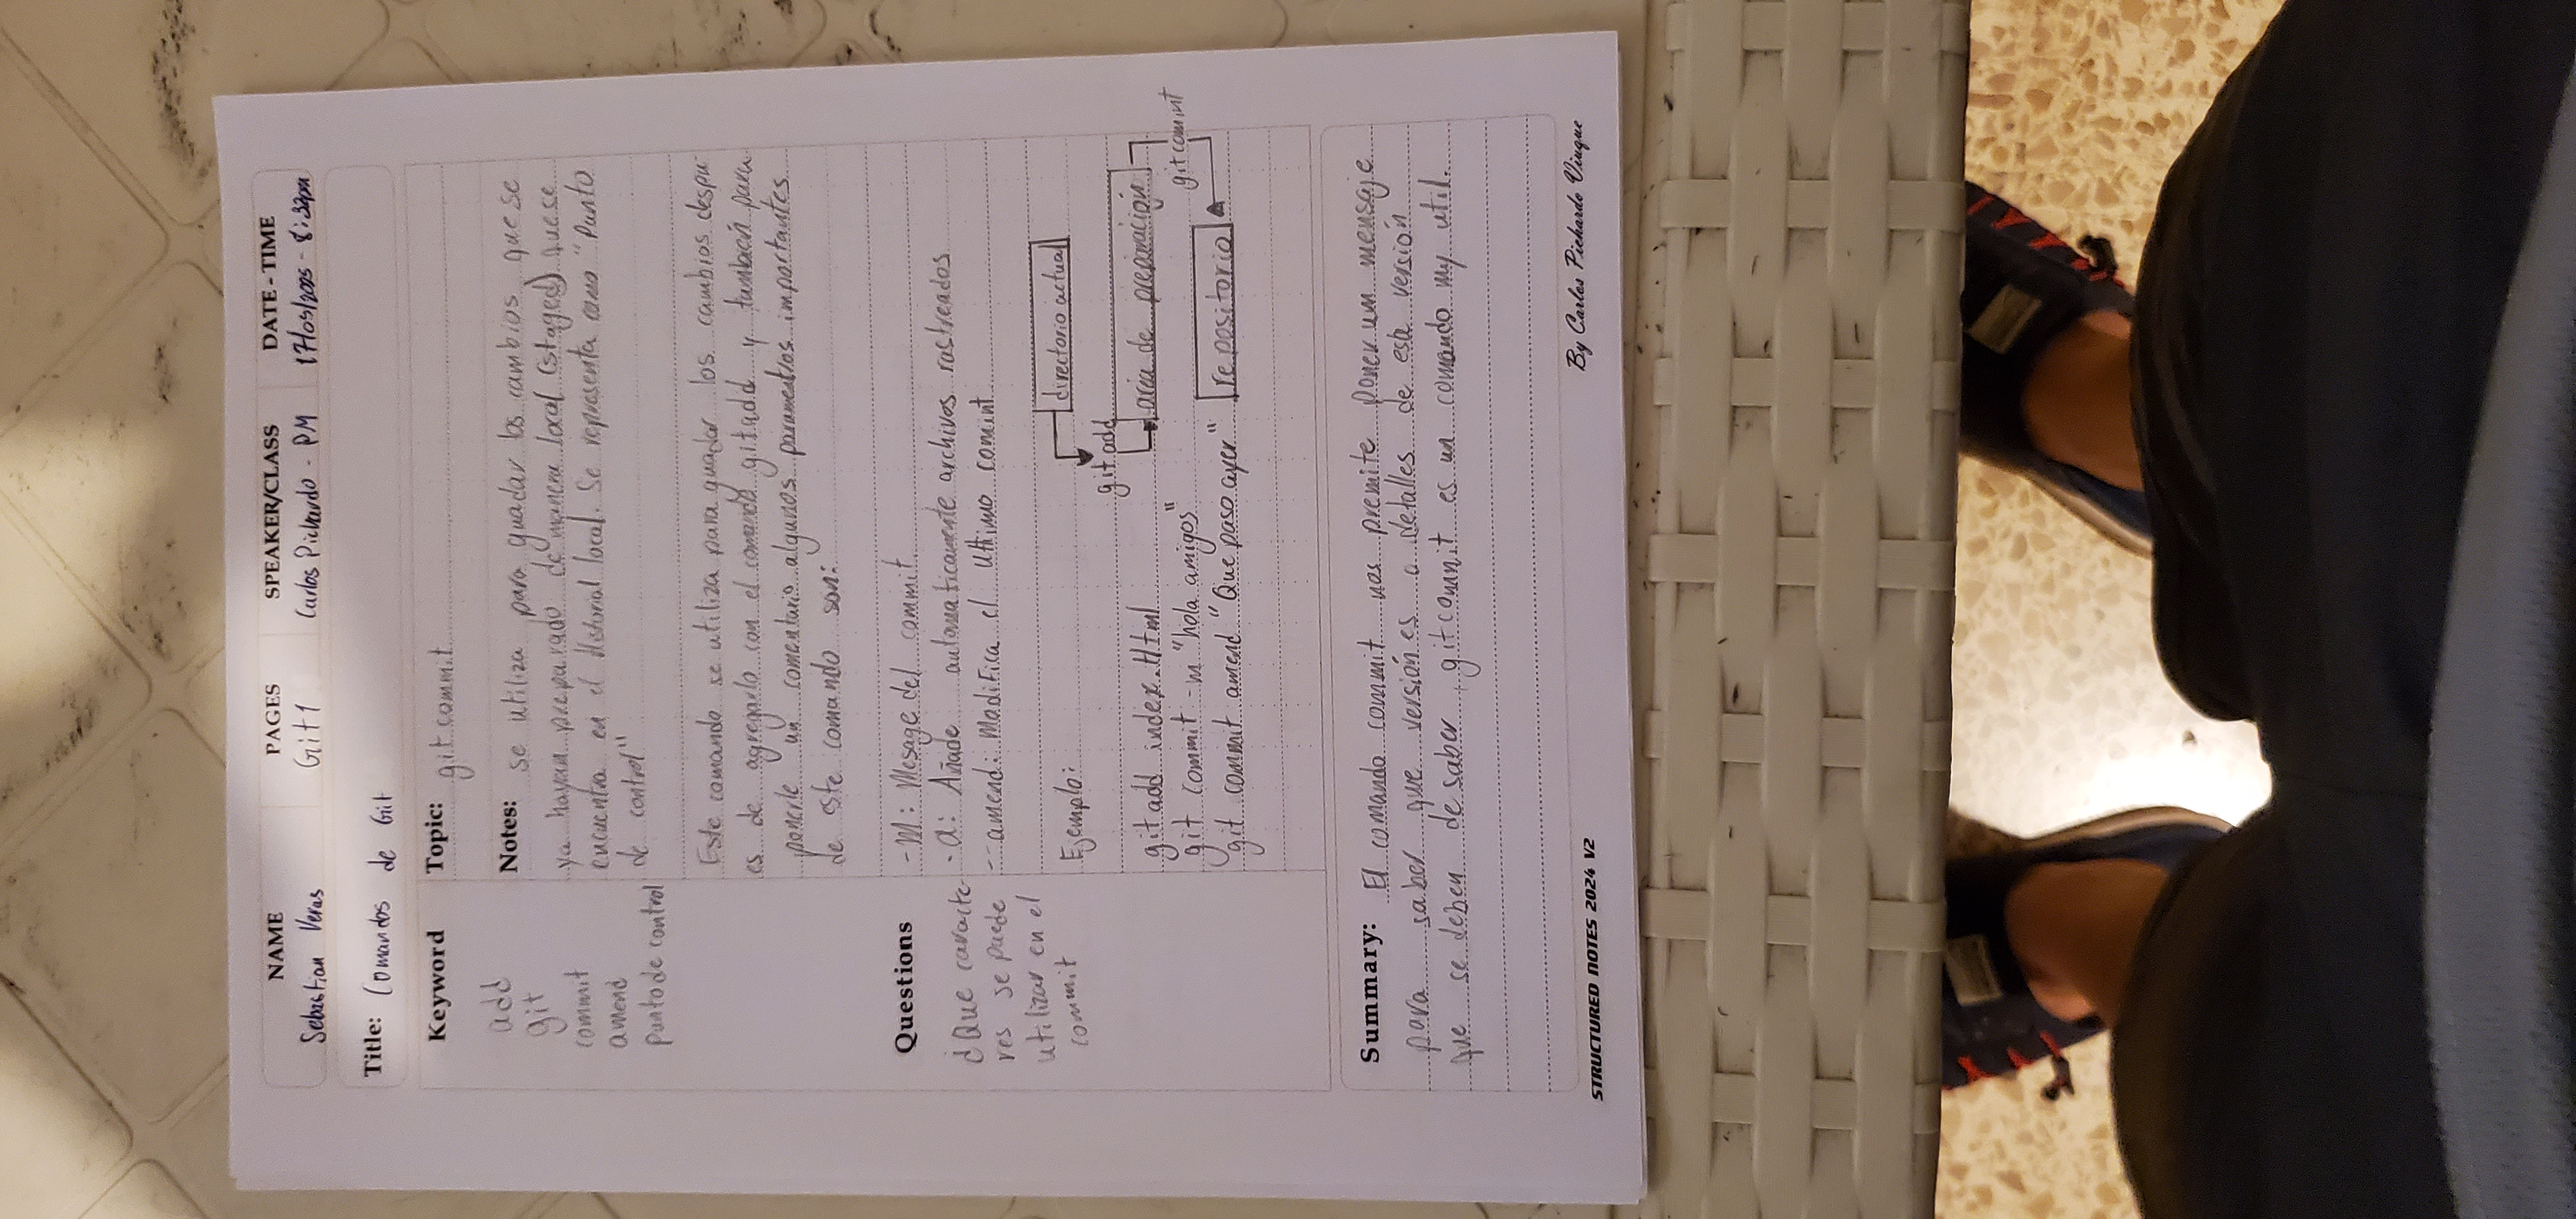 NAME PAGES SPEAKER/CLASS DATE-TIME
Sebastian Veras Git1 Carlos Pichardo - PM 17/05/2025 - 8:32pm
Title: Comandos de Git
Keyword
add
git
commit
amend
punto de control
Topic: git commit
Notes: se utiliza para guadar los cambios que se
ya hayan preparado de manera local (staged) que se
encuentra en el Historial local. Se representa como "Punto
de control"
Este comando se utiliza para guadar los cambios despu-
es de agregarlo con el comando git add y también para
ponerle un comentario algunos paramentros importantes
de este comando son:
Questions
¿Que caracte-
res se puede
utilizar en el
commit
-m: Mesage del commit.
-a: Añade automaticamente archivos rastreados
--amend: Modifica el Ultimo comint
Ejemplo:
git add index.Html
git commit -m "hola amigos"
git commit amend "Que paso ayer"
directorio actual
git add
area de preparación
git comint
repositorio
Summary: El comando commit nos premite poner um mensaje
para saber que versión es o detalles de esta versión
que se deben de saber, git commit es un comando my util.
STRUCTURED NOTES 2024 V2
By Carlos Pichardo Viuque